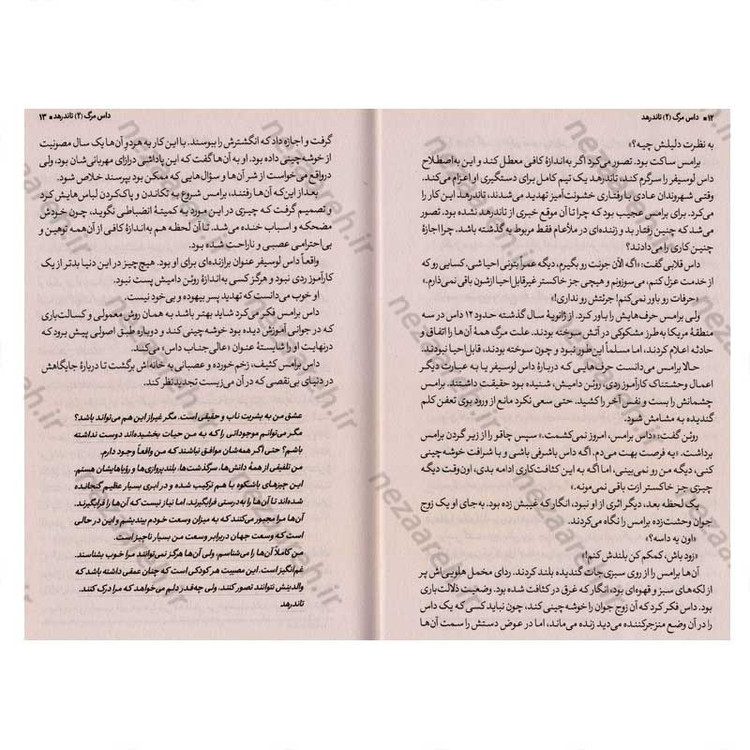 ۱۲ • داس مرگ (۲) تاندرهد
به نظرت دلیلش چیه؟»
برامس ساکت بود. تصور می‌کرد اگر به‌اندازهٔ کافی معطل کند و این به‌اصطلاح
داس لوسیفر را سرگرم کند، تاندرهد یک تیم کامل برای دستگیری او اعزام می‌کند.
وقتی شهروندان عادی با رفتاری خشونت‌آمیز تهدید می‌شدند، تاندرهد این کار را
می‌کرد. برای برامس عجیب بود که چرا تا آن موقع خبری از تاندرهد نشده بود. تصور
می‌شد که چنین رفتار بد و زننده‌ای در ملأعام فقط مربوط به گذشته باشد. چرا اجازهٔ
چنین کاری را می‌دادند؟
داس قلابی گفت: «اگه الآن جونت رو بگیرم، دیگه عمراً بتونی احیا شی. کسایی رو که
از خدمت عزل کنم، می‌سوزونم و هیچی جز خاکستر غیرقابل‌احیا ازشون باقی نمی‌ذارم.»
«حرفات رو باور نمی‌کنم! جرئتش رو نداری!»
ولی برامس حرف‌هایش را باور کرد. از ژانویهٔ سال گذشته حدود ۱۲ داس در سه
منطقهٔ مریکا به‌طرز مشکوکی در آتش سوخته بودند. علت مرگ همهٔ آن‌ها را اتفاق و
حادثه اعلام کردند، اما مسلماً این‌طور نبود و چون سوخته بودند، قابل‌احیا نبودند.
حالا برامس می‌دانست حرف‌هایی که دربارهٔ داس لوسیفر یا به عبارت دیگر
اعمال وحشتناک کارآموز ردی، روئن دامیش، شنیده بود حقیقت داشتند. برامس
چشمانش را بست و نفس آخر را کشید. حتی سعی نکرد مانع از ورود بوی تعفن کلم
گندیده به مشامش شود.
روئن گفت: «داس برامس، امروز نمی‌کشمت.» سپس چاقو را از زیر گردن برامس
برداشت. «یه فرصت بهت می‌دم. اگه داس باشرفی باشی و با شرافت خوشه‌چینی
کنی، دیگه من رو نمی‌بینی. اما اگه به این کثافت‌کاری ادامه بدی، اون‌وقت دیگه
چیزی جز خاکستر ازت باقی نمی‌مونه.»
یک لحظه بعد، دیگر اثری از او نبود، انگار که غیبش زده بود. به‌جای او یک زوج
جوان وحشت‌زده برامس را نگاه می‌کردند.
«اون یه داسه؟»
«زود باش، کمکم کن بلندش کنم!»
آن‌ها برامس را از روی سبزی‌جات گندیده بلند کردند. ردای مخمل هلویی‌اش پر
از لکه‌های سبز و قهوه‌ای بود، انگار که غرق در کثافت شده بود. وضعیت ذلالت‌باری
بود. داس فکر کرد که آن زوج جوان را خوشه‌چینی کند، چون نباید کسی که یک داس
را در آن وضع منزجرکننده می‌دید زنده می‌ماند، اما در عوض دستش را سمت آن‌ها
داس مرگ (۲) تاندرهد • ۱۳
گرفت و اجازه داد که انگشترش را ببوسند. با این کار به هردو آن‌ها یک سال مصونیت
از خوشه‌چینی داده بود. او به آن‌ها گفت که این پاداشی درازای مهربانی‌شان بود، ولی
درواقع می‌خواست از شر آن‌ها و سؤال‌هایی که ممکن بود بپرسند خلاص شود.
بعد از این‌که آن‌ها رفتند، برامس شروع به تکاندن و پاک‌کردن لباس‌هایش کرد
و تصمیم گرفت که چیزی در این مورد به کمیتهٔ انضباطی نگوید، چون خودش
مضحکه و اسباب خنده می‌شد. تا آن لحظه هم به‌اندازهٔ کافی از آن‌همه توهین و
بی‌احترامی عصبی و ناراحت شده بود.
واقعاً داس لوسیفر عنوان برازنده‌ای برای او بود. هیچ‌چیز در این دنیا بدتر از یک
کارآموز ردی نبود و هرگز کسی به‌اندازهٔ روئن دامیش پست نبود.
او خوب می‌دانست که تهدید پسر بیهوده و بی‌خود نیست.
داس برامس فکر می‌کرد شاید بهتر باشد به همان روش معمولی و کسالت‌باری
که در جوانی آموزش دیده بود خوشه‌چینی کند و دوباره طبق اصولی پیش برود که
درنهایت او را شایستهٔ عنوان «عالی‌جناب داس» می‌کنند.
داس برامس کثیف، زخم‌خورده و عصبانی به خانه‌اش برگشت تا دربارهٔ جایگاهش
در دنیای بی‌نقصی که در آن می‌زیست تجدیدنظر کند.
عشق من به بشریت ناب و حقیقی است. مگر غیراز این هم می‌تواند باشد؟
مگر می‌توانم موجوداتی را که به من حیات بخشیده‌اند دوست نداشته
باشم؟ حتی اگر همه‌شان موافق نباشند که من واقعاً وجود دارم.
من تلفیقی از همهٔ دانش‌ها، سرگذشت‌ها، بلندپروازی‌ها و رؤیاهایشان هستم.
این چیزهای باشکوه با هم ترکیب شده و در ابری بسیار عظیم گنجانده
شده‌اند تا آن‌ها را به‌درستی فرابگیرند. اما نیاز نیست که آن‌ها را فرابگیرند.
آن‌ها مرا مجبور می‌کنند که به میزان وسعت خودم بیندیشم و این در حالی
است که وسعت جهان دربرابر وسعت من بسیار ناچیز است.
من کاملاً آن‌ها را می‌شناسم، ولی آن‌ها هرگز نمی‌توانند مرا خوب بشناسند.
غم‌انگیز است. این مصیبت هر کودکی است که چنان عمقی داشته باشد که
والدینش نتوانند تصور کنند. ولی چه‌قدر دلم می‌خواهد که مرا درک کنند.
تاندرهد
nezaareh.ir